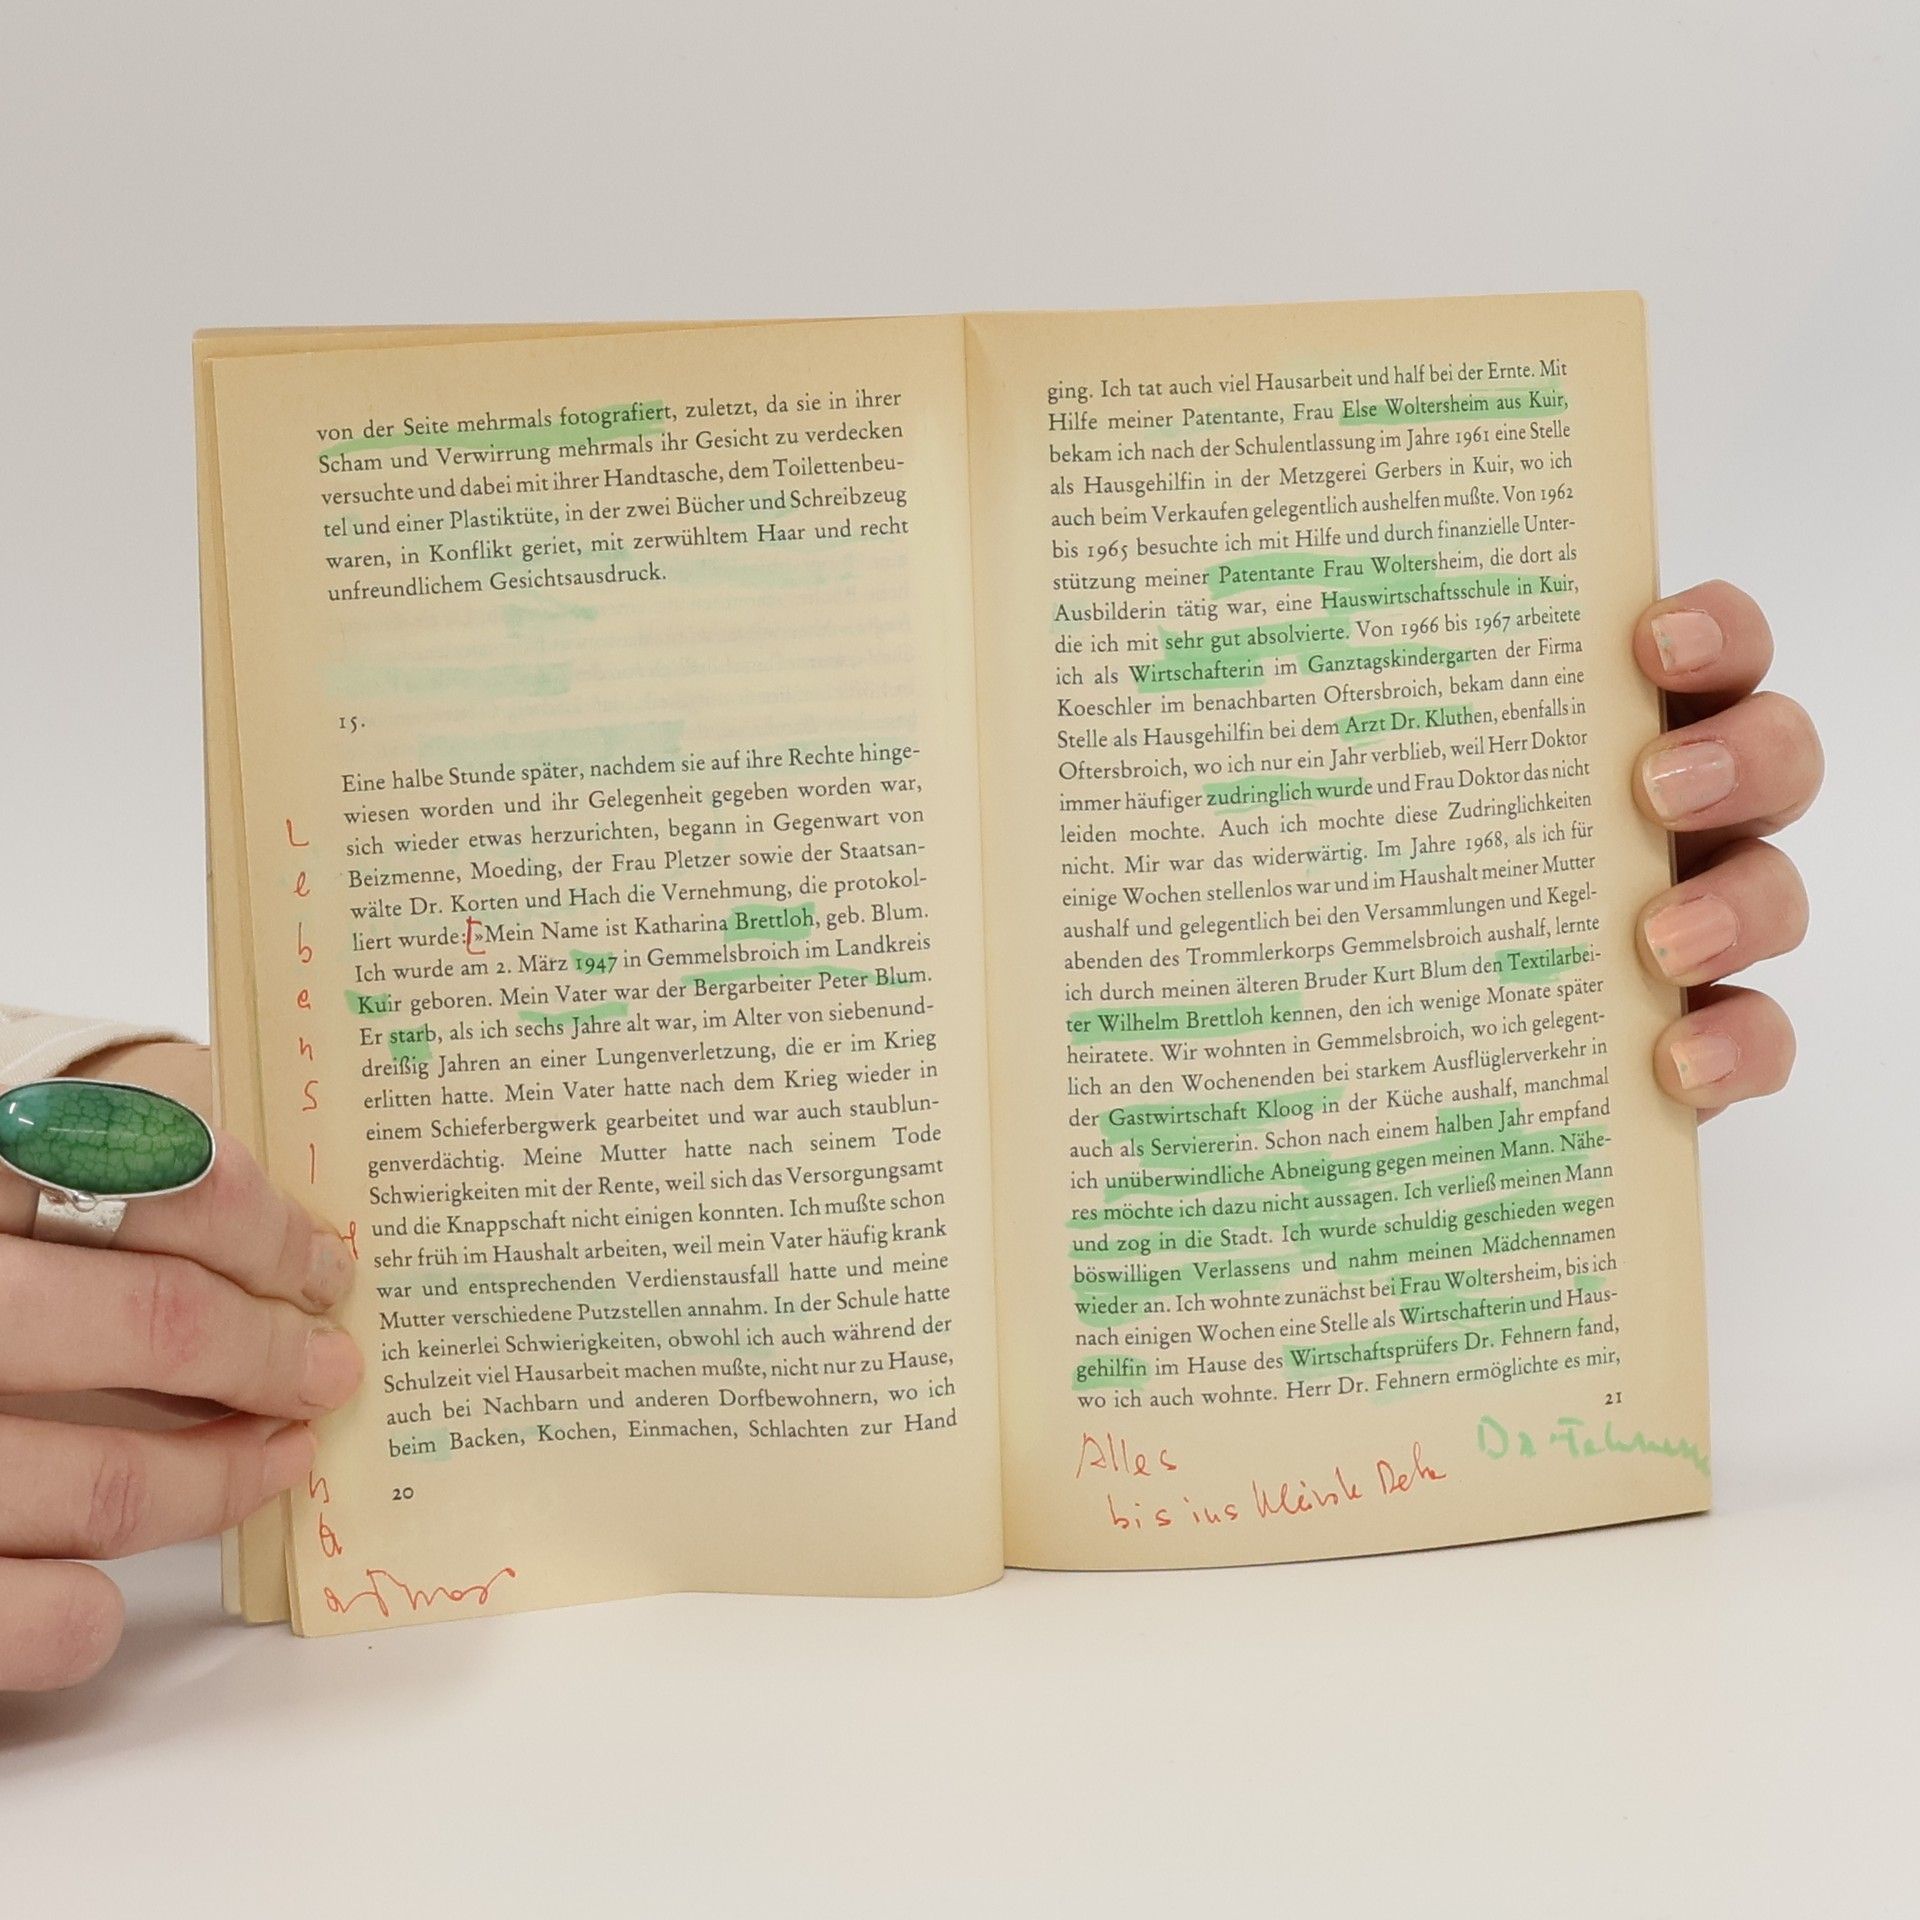 von der Seite mehrmals fotografiert, zuletzt, da sie in ihrer
Scham und Verwirrung mehrmals ihr Gesicht zu verdecken
versuchte und dabei mit ihrer Handtasche, dem Toilettenbeu-
tel und einer Plastiktüte, in der zwei Bücher und Schreibzeug
waren, in Konflikt geriet, mit zerwühltem Haar und recht
unfreundlichem Gesichtsausdruck.
15.
Eine halbe Stunde später, nachdem sie auf ihre Rechte hinge-
wiesen worden und ihr Gelegenheit gegeben worden war,
sich wieder etwas herzurichten, begann in Gegenwart von
Beizmenne, Moeding, der Frau Pletzer sowie der Staatsan-
wälte Dr. Korten und Hach die Vernehmung, die protokol-
liert wurde: »Mein Name ist Katharina Brettloh, geb. Blum.
Ich wurde am 2. März 1947 in Gemmelsbroich im Landkreis
Kuir geboren. Mein Vater war der Bergarbeiter Peter Blum.
Er starb, als ich sechs Jahre alt war, im Alter von siebenund-
dreißig Jahren an einer Lungenverletzung, die er im Krieg
erlitten hatte. Mein Vater hatte nach dem Krieg wieder in
einem Schieferbergwerk gearbeitet und war auch staublun-
genverdächtig. Meine Mutter hatte nach seinem Tode
Schwierigkeiten mit der Rente, weil sich das Versorgungsamt
und die Knappschaft nicht einigen konnten. Ich mußte schon
sehr früh im Haushalt arbeiten, weil mein Vater häufig krank
war und entsprechenden Verdienstausfall hatte und meine
Mutter verschiedene Putzstellen annahm. In der Schule hatte
ich keinerlei Schwierigkeiten, obwohl ich auch während der
Schulzeit viel Hausarbeit machen mußte, nicht nur zu Hause,
auch bei Nachbarn und anderen Dorfbewohnern, wo ich
beim Backen, Kochen, Einmachen, Schlachten zur Hand
20
ging. Ich tat auch viel Hausarbeit und half bei der Ernte. Mit
Hilfe meiner Patentante, Frau Else Woltersheim aus Kuir,
bekam ich nach der Schulentlassung im Jahre 1961 eine Stelle
als Hausgehilfin in der Metzgerei Gerbers in Kuir, wo ich
auch beim Verkaufen gelegentlich aushelfen mußte. Von 1962
bis 1965 besuchte ich mit Hilfe und durch finanzielle Unter-
stützung meiner Patentante Frau Woltersheim, die dort als
Ausbilderin tätig war, eine Hauswirtschaftsschule in Kuir,
die ich mit sehr gut absolvierte. Von 1966 bis 1967 arbeitete
ich als Wirtschafterin im Ganztagskindergarten der Firma
Koeschler im benachbarten Oftersbroich, bekam dann eine
Stelle als Hausgehilfin bei dem Arzt Dr. Kluthen, ebenfalls in
Oftersbroich, wo ich nur ein Jahr verblieb, weil Herr Doktor
immer häufiger zudringlich wurde und Frau Doktor das nicht
leiden mochte. Auch ich mochte diese Zudringlichkeiten
nicht. Mir war das widerwärtig. Im Jahre 1968, als ich für
einige Wochen stellenlos war und im Haushalt meiner Mutter
aushalf und gelegentlich bei den Versammlungen und Kegel-
abenden des Trommlerkorps Gemmelsbroich aushalf, lernte
ich durch meinen älteren Bruder Kurt Blum den Textilarbei-
ter Wilhelm Brettloh kennen, den ich wenige Monate später
heiratete. Wir wohnten in Gemmelsbroich, wo ich gelegent-
lich an den Wochenenden bei starkem Ausflüglerverkehr in
der Gastwirtschaft Kloog in der Küche aushalf, manchmal
auch als Serviererin. Schon nach einem halben Jahr empfand
ich unüberwindliche Abneigung gegen meinen Mann. Nähe-
res möchte ich dazu nicht aussagen. Ich verließ meinen Mann
und zog in die Stadt. Ich wurde schuldig geschieden wegen
böswilligen Verlassens und nahm meinen Mädchennamen
wieder an. Ich wohnte zunächst bei Frau Woltersheim, bis ich
nach einigen Wochen eine Stelle als Wirtschafterin und Haus-
gehilfin im Hause des Wirtschaftsprüfers Dr. Fehnern fand,
wo ich auch wohnte. Herr Dr. Fehnern ermöglichte es mir,
21
Alles
bis ins